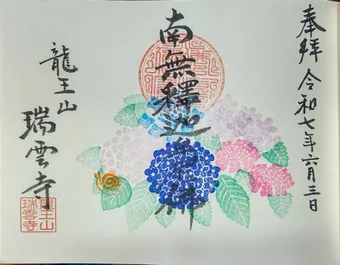 奉拝 令和七年六月三日
南無釋迦尊佛
龍王山
瑞雲寺
龍王山
瑞雲寺